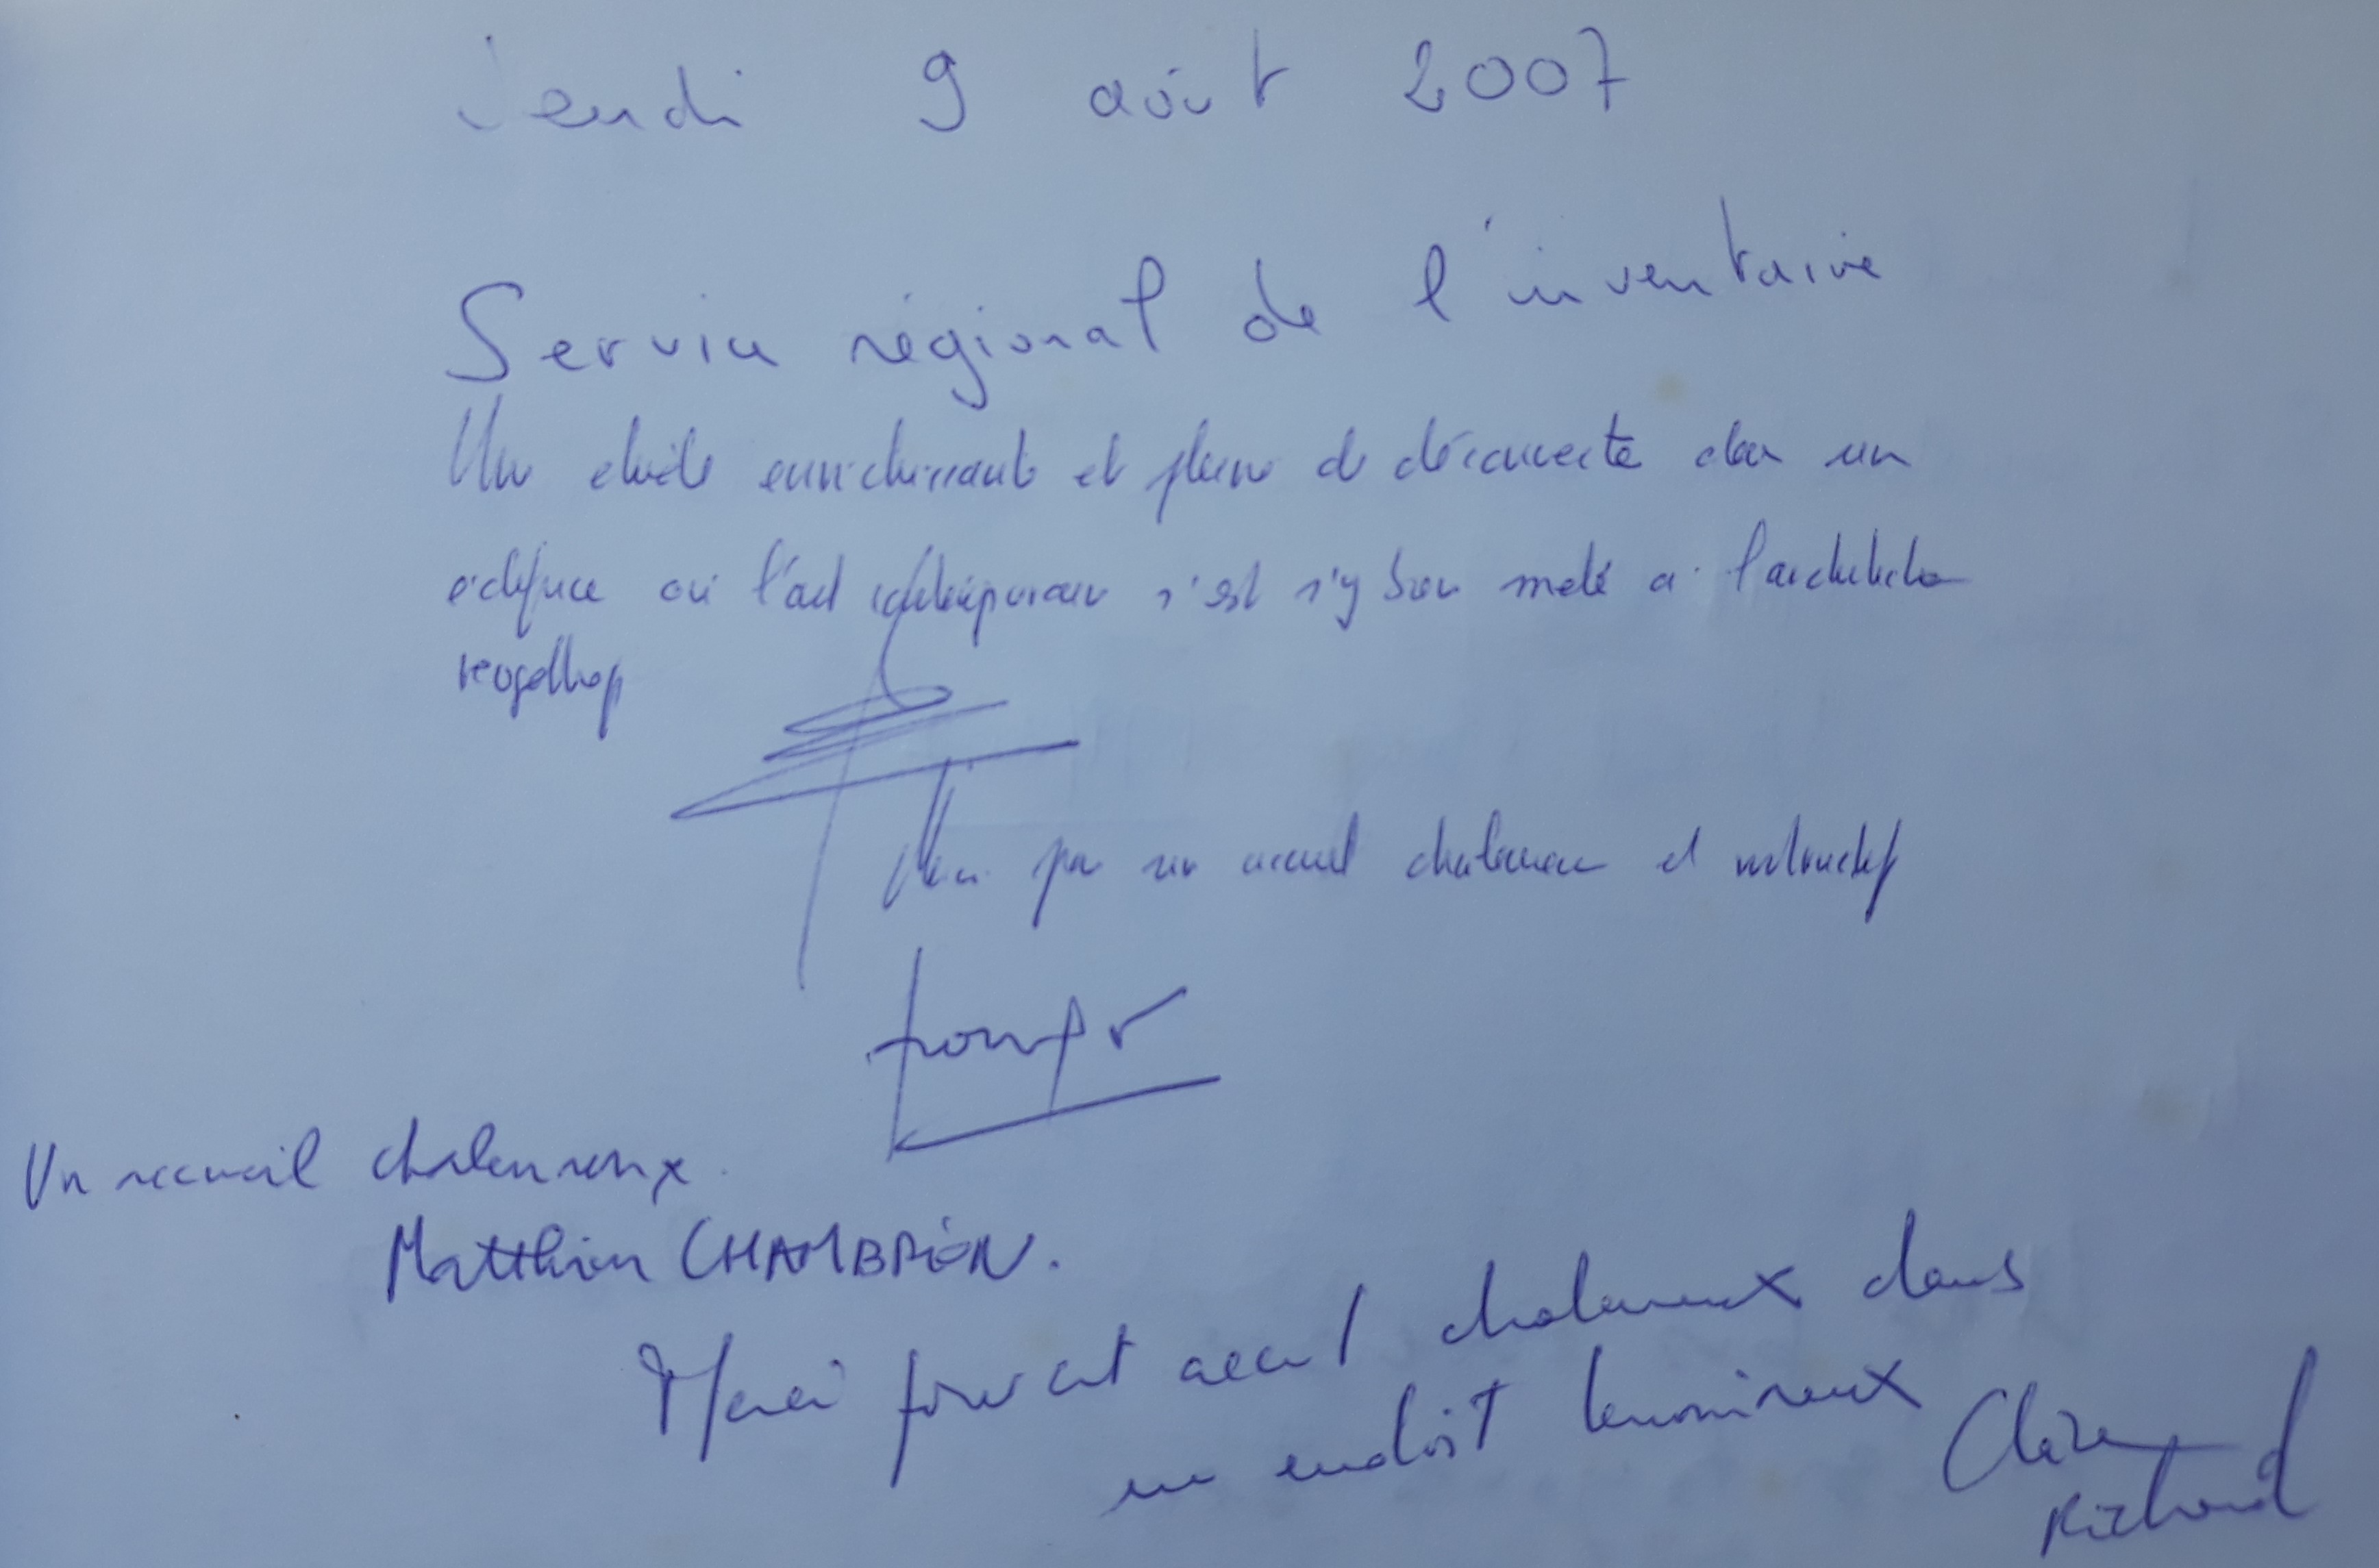 Jeudi 9 août 2007
Service régional de l'inventaire
Un enrichissante et pleine de découverte dans un
édifice où l'art contemporain s'est s'y bien mélé à l'architecture
Merci pour un accueil chaleureux et instructif
Un accueil chaleureux.
Matthieu CHAMBRION.
Merci pour cet accueil chaleureux dans
un endroit lumineux Claire
Richard